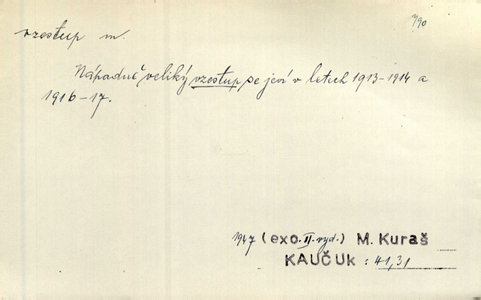 vzestup m.
Nápadně veliký vzestup se jeví v letech 1913-1914 a
1916-17.
(exc. II. vyd.) M. Kuraš
KAUČUK : 41,31